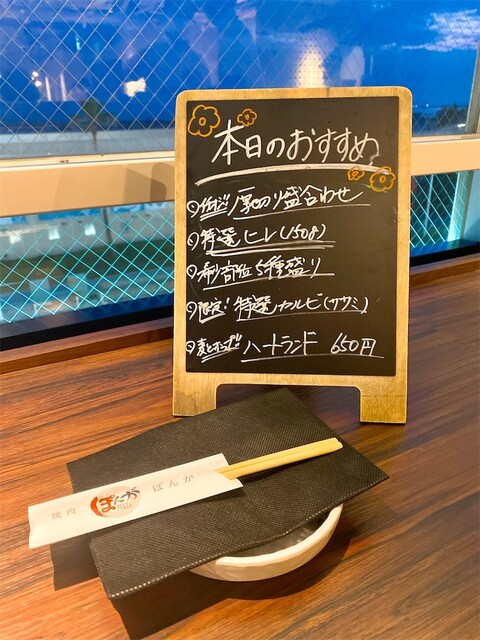 本日のおすすめ
厚切り盛合わせ
特選ヒレ(150g)
希少部位5種盛り
限定!特選カルビ(ササミ)
麦とホップ!! ハートランド 650円
焼肉 ぽんが